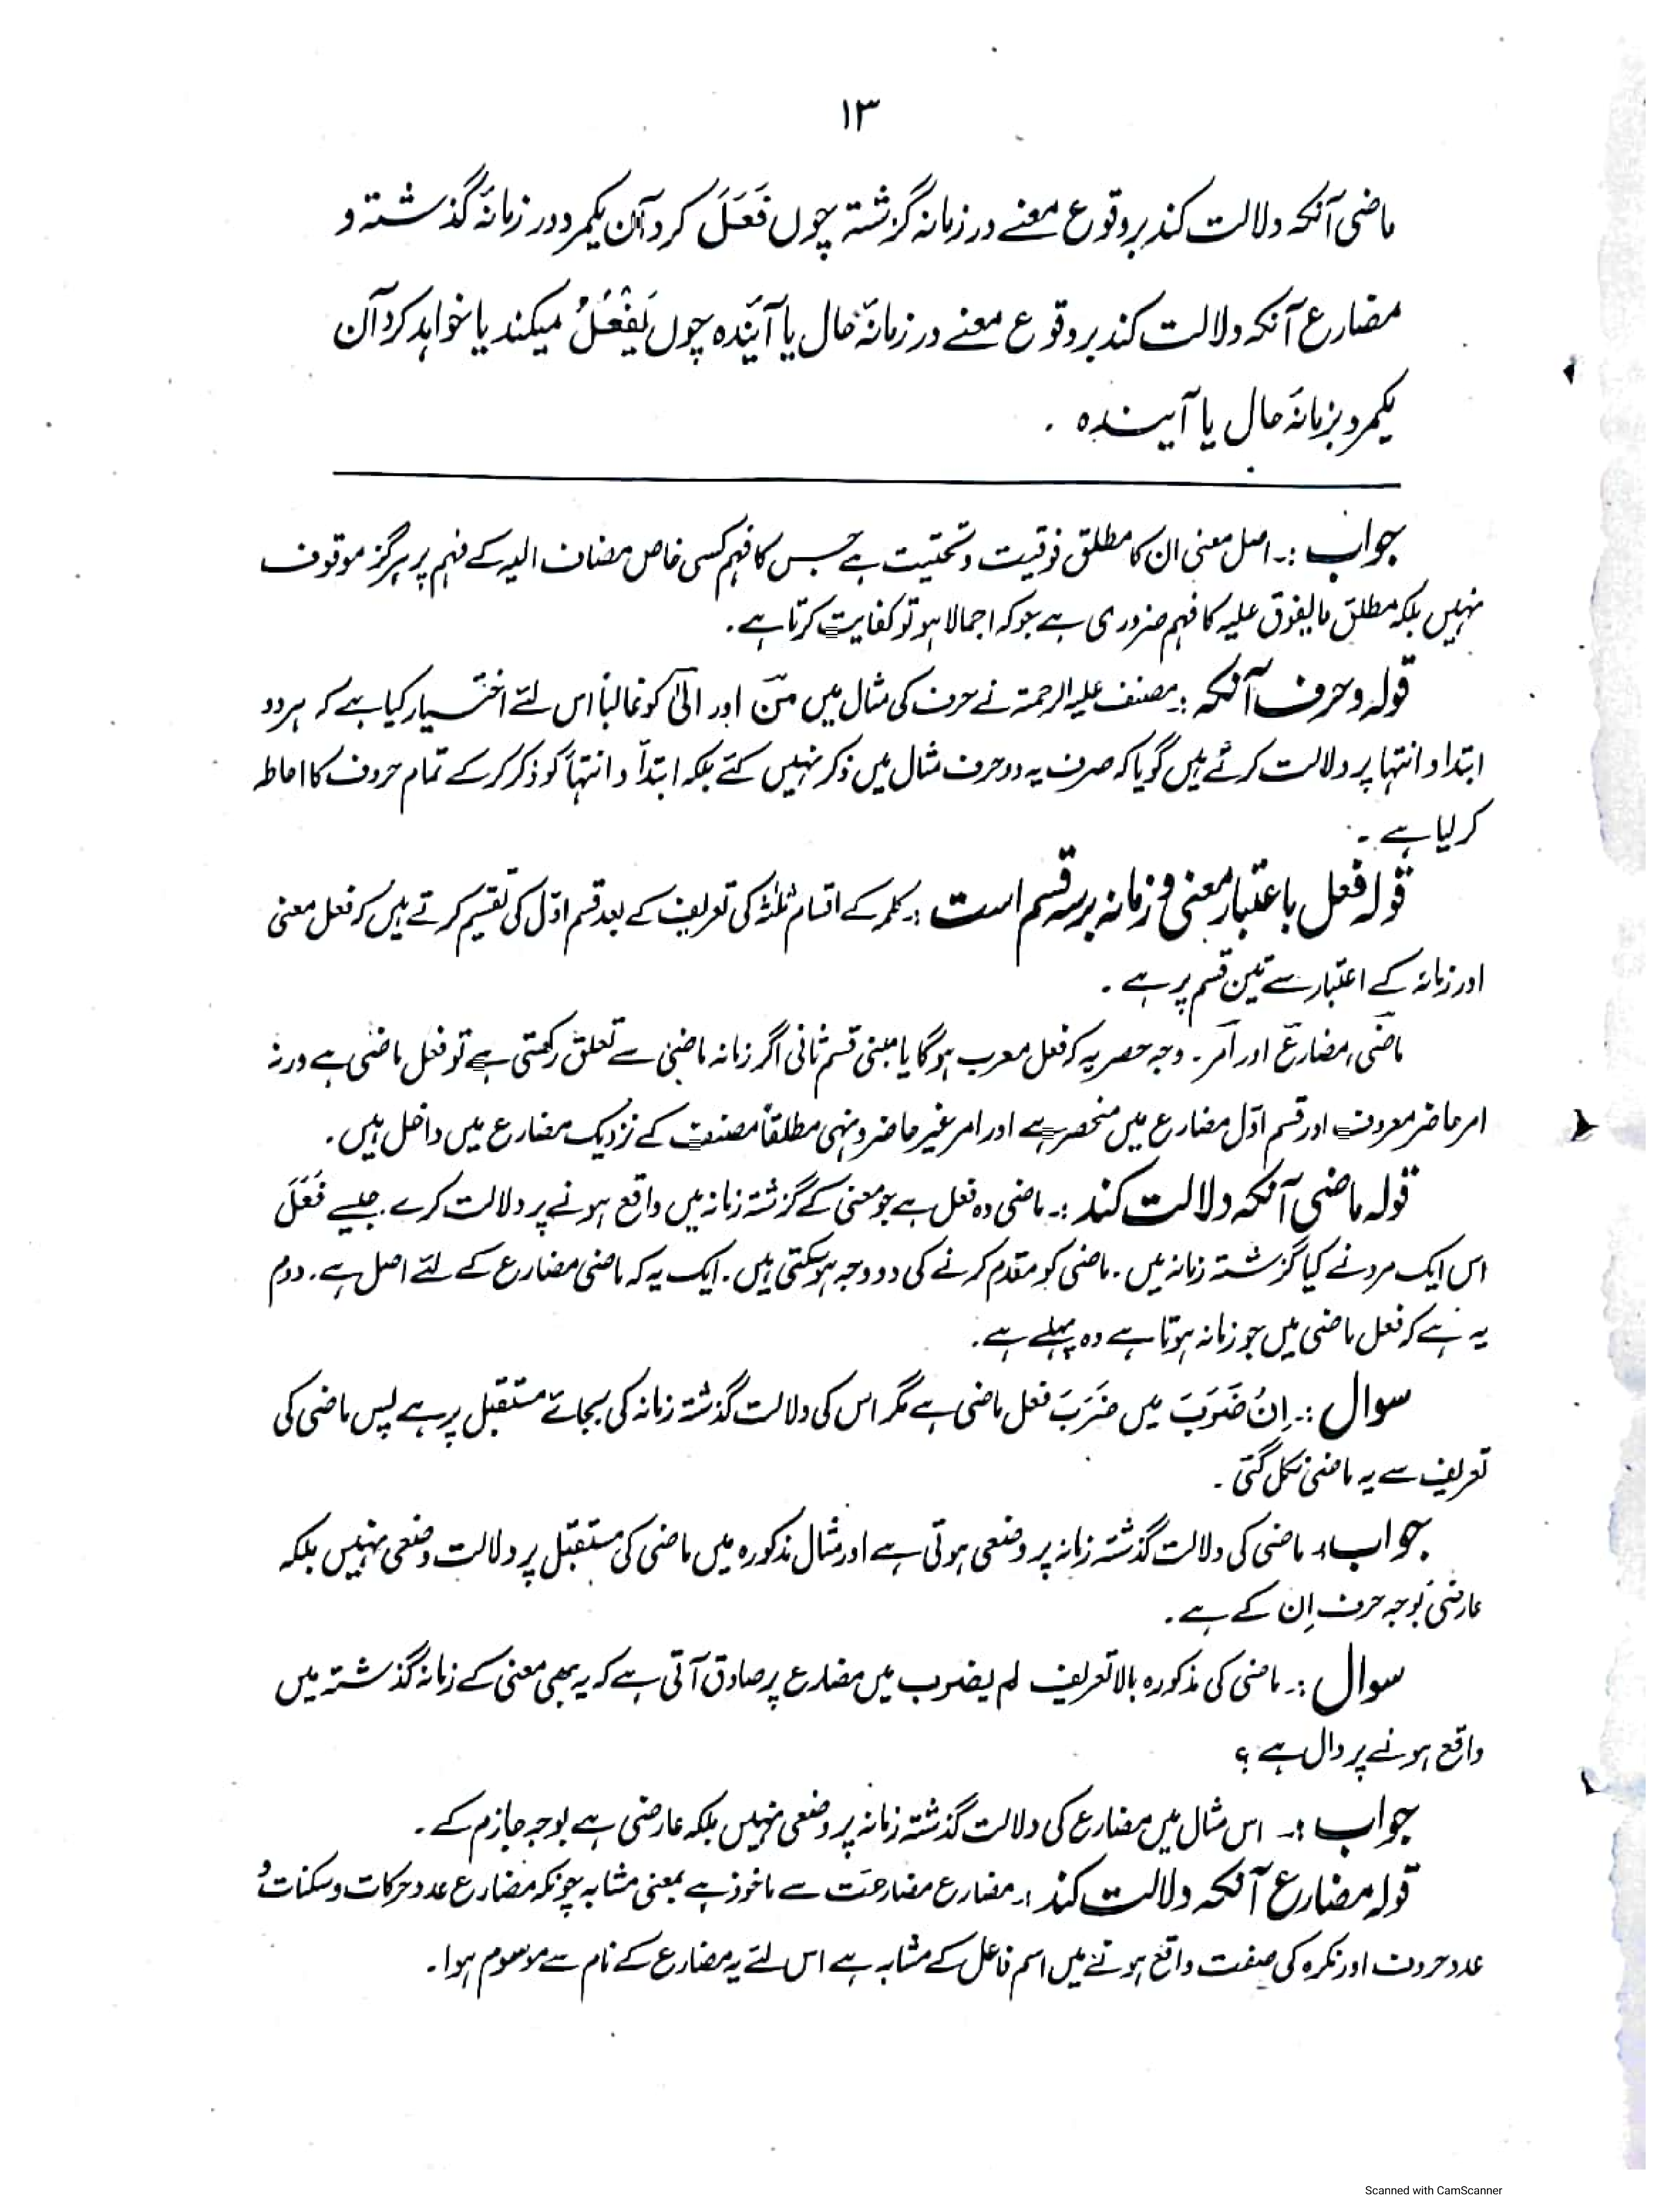 ۱۳
ماضی آنکہ دلالت کند بر وقوع معنے در زمانہ گزشتہ چوں فَعَلَ کرد آن یکمرد در زمانۂ گذشتہ و
مضارع آنکہ دلالت کند بر وقوع معنے در زمانۂ حال یا آئندہ چوں یَفْعَلُ میکند یا خواہد کرد آن
یکمرد بزمانۂ حال یا آیندہ ۔
جواب :۔ اصل معنی ان کا مطلق فوقیت و تحتیت ہے جس کا فہم کسی خاص مضاف الیہ کے فہم پر ہرگز موقوف
نہیں بلکہ مطلق مایفوق علیہ کا فہم ضروری ہے جو کہ اجمالا ہو تو کفایت کرتا ہے۔
قولہ وحرف آنکہ :۔ مصنف علیہ الرحمۃ نے حرف کی مثال میں من اور الیٰ کو غالباً اس لئے اختیار کیا ہے کہ ہر دو
ابتدا و انتہا پر دلالت کرتے ہیں گویا کہ صرف یہ دو حرف مثال میں ذکر نہیں کئے بلکہ ابتدأ و انتہأ کو ذکر کر کے تمام حروف کا احاطہ
کر لیا ہے ۔
قولہ فعل باعتبار معنی و زمانہ برسہ قسم است :۔ کلمہ کے اقسام ثلثہ کی تعریف کے بعد قسم اوّل کی تقسیم کرتے ہیں کہ فعل معنی
اور زمانہ کے اعتبار سے تین قسم پر ہے ۔
ماضی، مضارع اور امر۔ وجہ حصر یہ کہ فعل معرب ہوگا یا مبنی قسم ثانی اگر زمانہ ماضی سے تعلق رکھتی ہے تو فعل ماضی ہے ورنہ
امر حاضر معروف اور قسم اوّل مضارع میں منحصر ہے اور امر غیر حاضر و نہی مطلقاً مصنف کے نزدیک مضارع میں داخل ہیں۔
قولہ ماضی آنکہ دلالت کند :۔ ماضی وہ فعل ہے جو معنی کے گزشتہ زمانہ میں واقع ہونے پر دلالت کرے۔ جیسے فَعَلَ
اس ایک مرد نے کیا گزشتہ زمانہ میں۔ ماضی کو مقدم کرنے کی دو وجہ ہو سکتی ہیں۔ ایک یہ کہ ماضی مضارع کے لئے اصل ہے۔ دوم
یہ ہے کہ فعل ماضی میں جو زمانہ ہوتا ہے وہ پہلے ہے۔
سوال :۔ اِنْ ضَرَبَ میں ضَرَبَ فعل ماضی ہے مگر اس کی دلالت گذشتہ زمانہ کی بجائے مستقبل پر ہے پس ماضی کی
تعریف سے یہ ماضی نکل گئی ۔
جواب، ماضی کی دلالت گذشتہ زمانہ پر وضعی ہوتی ہے اور مثال مذکورہ میں ماضی کی مستقبل پر دلالت وضعی نہیں بلکہ
عارضی بوجہ حرف اِن کے ہے۔
سوال :۔ ماضی کی مذکورہ بالا تعریف لم یضرب میں مضارع پر صادق آتی ہے کہ یہ بھی معنی کے زمانہ گذشتہ میں
واقع ہونے پر دال ہے ؟
جواب :۔ اس مثال میں مضارع کی دلالت گذشتہ زمانہ پر وضعی نہیں بلکہ عارضی ہے بوجہ جازم کے۔
قولہ مضارع آنکہ دلالت کند :۔ مضارع مضارعت سے ماخوذ ہے بمعنی مشابہ چونکہ مضارع عدد حرکات و سکنات و
عدد حروف اور نکرہ کی صفت واقع ہونے میں اسم فاعل کے مشابہ ہے اس لئے یہ مضارع کے نام سے موسوم ہوا۔
Scanned with CamScanner